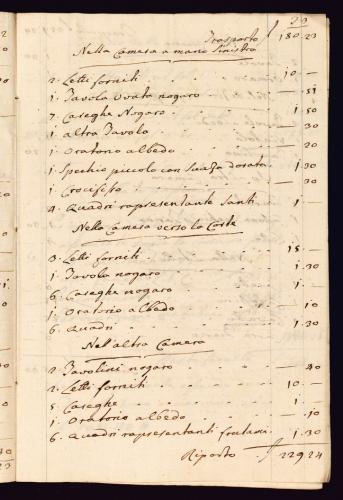 Trasporto 180 23
Nella Camera a mano Sinistra
2. Letti forniti 10 —
1. Tavola Ovata nogaro — 51
7. Careghe Nogaro 1 50
1 altra Tavola — 30
1. Oratorio albedo — 20
1. Specchio piccolo con Suaza dorata 1 30
1. Crocifisso — 30
4. Quadri rapresentante Santi 1 —
Nella Camera verso la Corte
3. Letti forniti 15 —
1. Tavola nogaro 1.30
6. Careghe nogaro 1. —
1. Oratorio albedo — 10
6. Quadri 1.30
Nel'altra Camera
2. Tavolini nogaro — 40
2. Letti forniti 10. —
5. Careghe 1. —
1. Oratorio albedo — .10
6. Quadri rapresentanti 1.30
Riporto 229 24